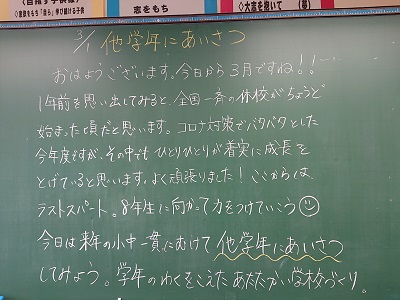 志をもち
◇大志を抱いて
3/1 他学年にあいさつ
おはようございます。今日から3月ですね!!
1年前を思い出してみると、全国一斉の休校がちょうど
始まった頃だと思います。コロナ対策でバタバタとした
今年度ですが、その中でもひとりひとりが着実に成長を
とげていると思います。よく頑張りました!ここからは、
ラストスパート。8年生に向かって力をつけていこう
今日は来年の小中一貫にむけて他学年にあいさつ
してみよう。学年のわくをこえたあたたかい学校づくり。